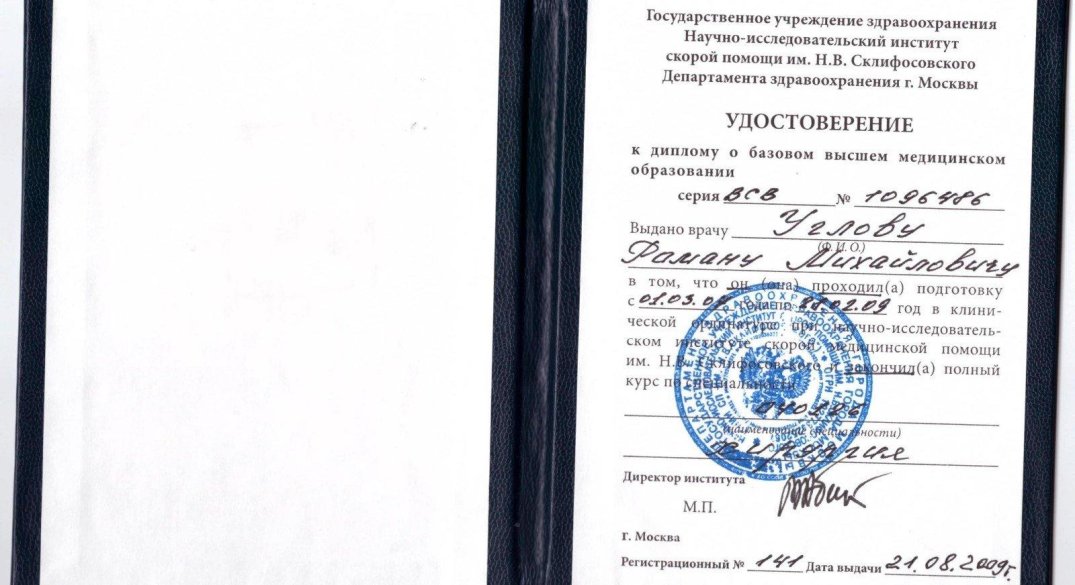 Государственное учреждение здравоохранения
Научно-исследовательский институт
скорой помощи им. Н.В. Склифосовского
Департамента здравоохранения г. Москвы
УДОСТОВЕРЕНИЕ
к диплому о базовом высшем медицинском
образовании
серия ВСВ № 1096486
Выдано врачу Углову
(Ф.И.О.)
Роману Михайловичу
в том, что он (она) проходил(а) подготовку
с 01.03. года по 02.09 год в клини-
ческой ординатуре при научно-исследователь-
ском институте скорой медицинской помощи
им. Н.В. Склифосовского и закончил(а) полный
курс по специальности
(наименование специальности)
хирургия
Директор института
М.П.
г. Москва
Регистрационный № 141 Дата выдачи 21.08.2009г